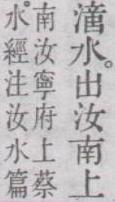 水。出汝南上
南汝寧府上蔡
水。經注汝水篇